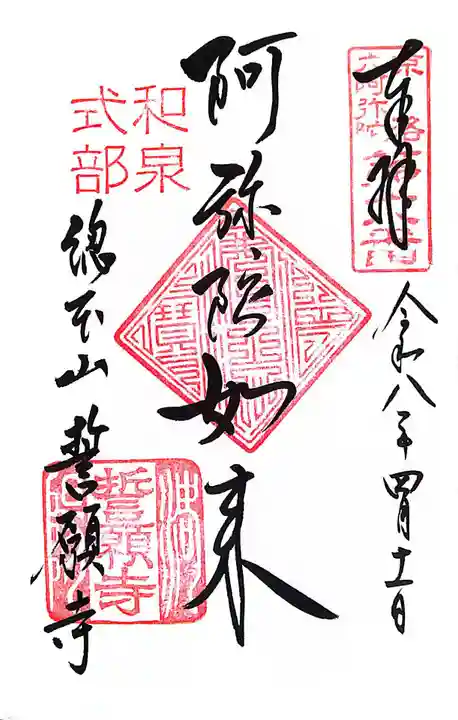 奉拝
令和八年四月十一日
阿弥陀如来
和泉
式部
總本山 誓願寺
誓願寺